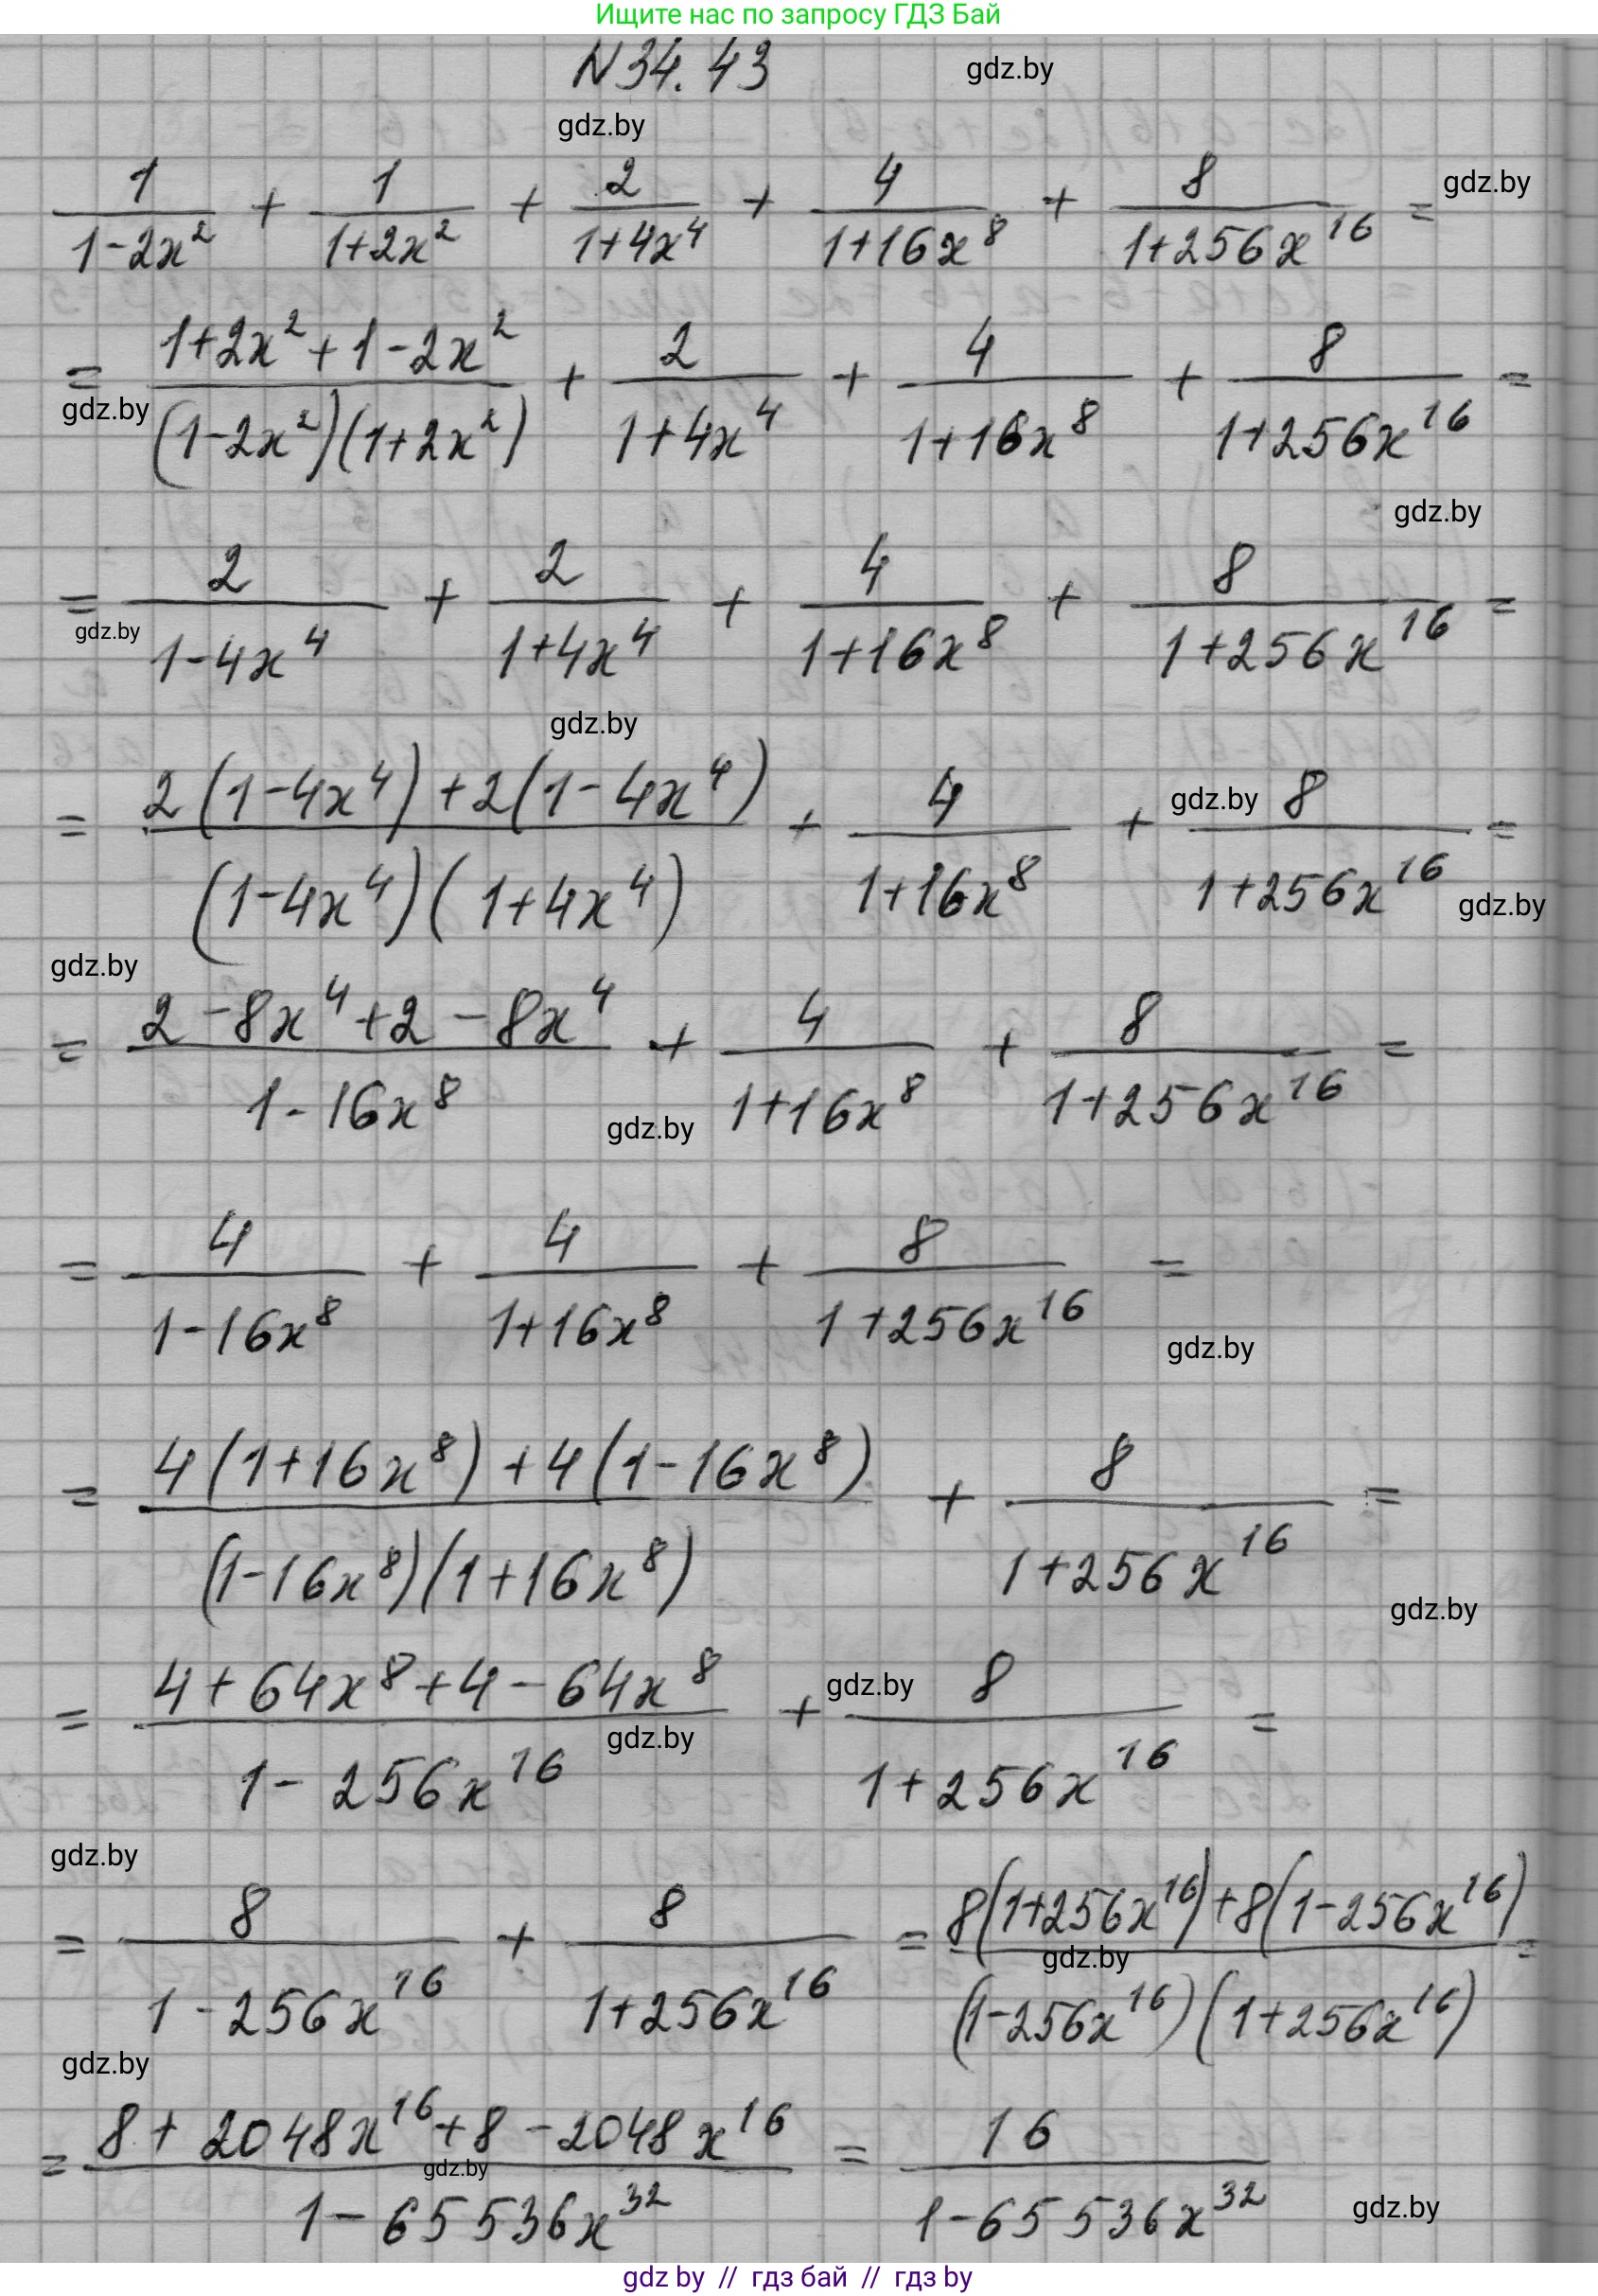 Ищите нас по запросу ГДЗ Бай
N34.43 gdz.by
gdz.by
1/(1-2x²) + 1/(1+2x²) + 2/(1+4x⁴) + 4/(1+16x⁸) + 8/(1+256x¹⁶) = gdz.by
= (1+2x²+1-2x²)/((1-2x²)(1+2x²)) + 2/(1+4x⁴) + 4/(1+16x⁸) + 8/(1+256x¹⁶) =
gdz.by
gdz.by
= 2/(1-4x⁴) + 2/(1+4x⁴) + 4/(1+16x⁸) + 8/(1+256x¹⁶) =
gdz.by
gdz.by
= (2(1-4x⁴)+2(1-4x⁴))/((1-4x⁴)(1+4x⁴)) + 4/(1+16x⁸) + 8/(1+256x¹⁶) =
gdz.by
gdz.by
gdz.by
= (2-8x⁴+2-8x⁴)/(1-16x⁸) + 4/(1+16x⁸) + 8/(1+256x¹⁶) =
gdz.by
= 4/(1-16x⁸) + 4/(1+16x⁸) + 8/(1+256x¹⁶) =
gdz.by
= (4(1+16x⁸)+4(1-16x⁸))/((1-16x⁸)(1+16x⁸)) + 8/(1+256x¹⁶) =
gdz.by
= (4+64x⁸+4-64x⁸)/(1-256x¹⁶) + 8/(1+256x¹⁶) =
gdz.by
gdz.by
gdz.by
= 8/(1-256x¹⁶) + 8/(1+256x¹⁶) = (8(1+256x¹⁶)+8(1-256x¹⁶))/((1-256x¹⁶)(1+256x¹⁶)) =
gdz.by
gdz.by
= (8+2048x¹⁶+8-2048x¹⁶)/(1-65536x³²) = 16/(1-65536x³²)
gdz.by
gdz.by
gdz by // гдз бай // гдз by